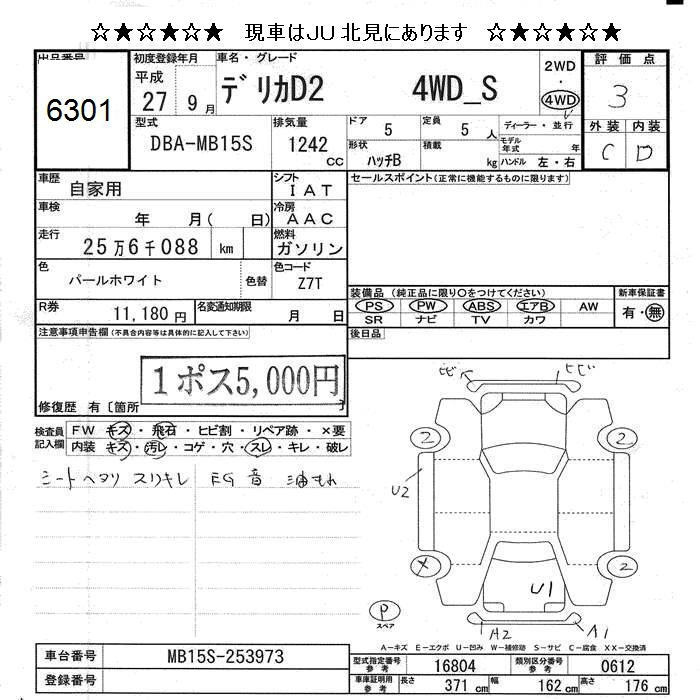 ☆★☆★☆★ 現車はJU北見にあります ☆★☆★☆★
出品番号 初度登録年月 車名・グレード 2WD 評価点
6301 平成 27 9月 デリカD2 4WD_S ・ 4WD 3
型式 排気量 ドア 定員 ディーラー・並行 外装 内装
DBA-MB15S 1242 CC 5 5人 モデル年式 年 C D
形状 積載 ハッチB kg ハンドル 左・右
車歴 自家用 シフト IAT セールスポイント(正常に機能するものに限ります)
車検 年 月( 日) 冷房 AAC
走行 25万6千088 km 燃料 ガソリン
色 パールホワイト 色替 色コード Z7T
装備品(純正品に限り○をつけてください) 新車保証書
R券 11,180円 名変通知期限 月 日 PS PW ABS エアB AW 有・無
SR ナビ TV カワ
注意事項申告欄(不具合内容等は具体的に記入して下さい) 後日品
1ポス5,000円
修復歴 有〔箇所 〕
検査員記入欄 FW キズ・飛石・ヒビ割・リペア跡・×要
内装 キズ・汚レ・コゲ・穴・スレ・キレ・破レ
シートヘタリ スリキレ EG音 油もれ
ヒビ ヒビ
2 2
U2
X 2
U1
P スペア
A2 A1
A－キズ E－エクボ U－凹み W－補修跡 S－サビ C－腐食 XX－交換済
車台番号 MB15S-253973 型式指定番号 参考 16804 類別区分番号 参考 0612
登録番号 車庫証明用 参考 長さ 371cm 幅 162cm 高さ 176cm